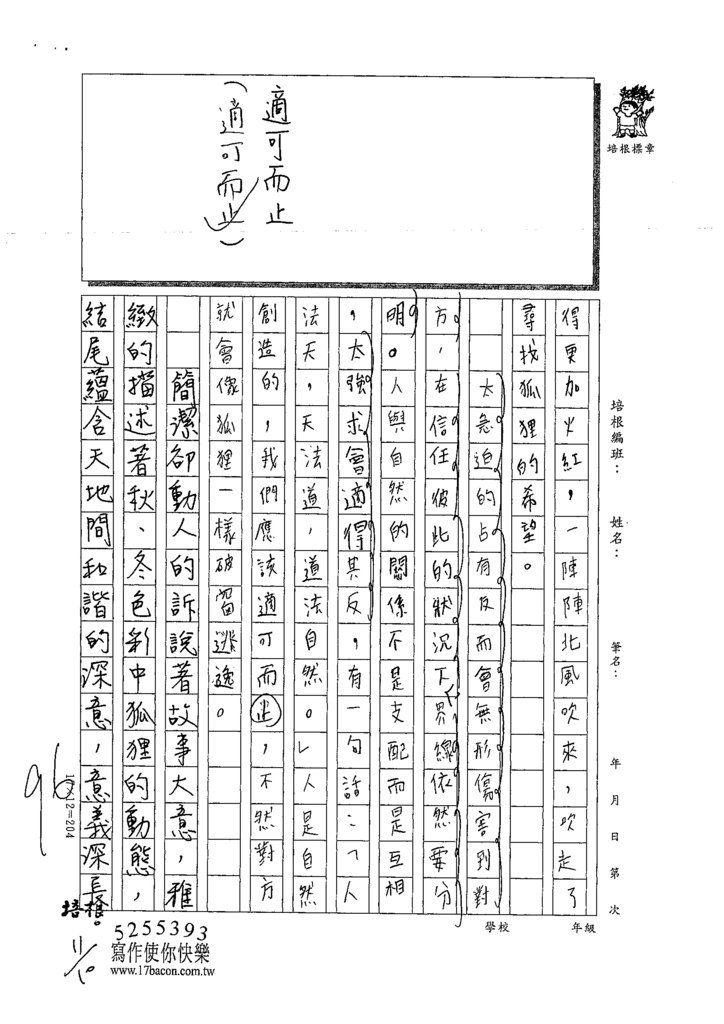 適可而止
(適可而止)
培根標章
培根編班： 姓名： 筆名： 年 月 日 第 次
學校 年級
得更加火紅，一陣陣北風吹來，吹走了
尋找狐狸的希望。
太急迫的占有反而會無形傷害到對
方，在信任彼此的狀況下界線依然要分
明。人與自然的關係不是支配而是互相
，太強求會適得其反，有一句話：「人
法天，天法道，道法自然。」人是自然
創造的，我們應該適可而止，不然對方
就會像狐狸一樣破窗逃逸。
簡潔卻動人的訴說著故事大意，雅
緻的描述著秋、冬色彩中狐狸的動態，
結尾蘊含天地間和諧的深意，意義深長。
96
12=204
培根
11/10
5255393
寫作使你快樂
www.17bacon.com.tw